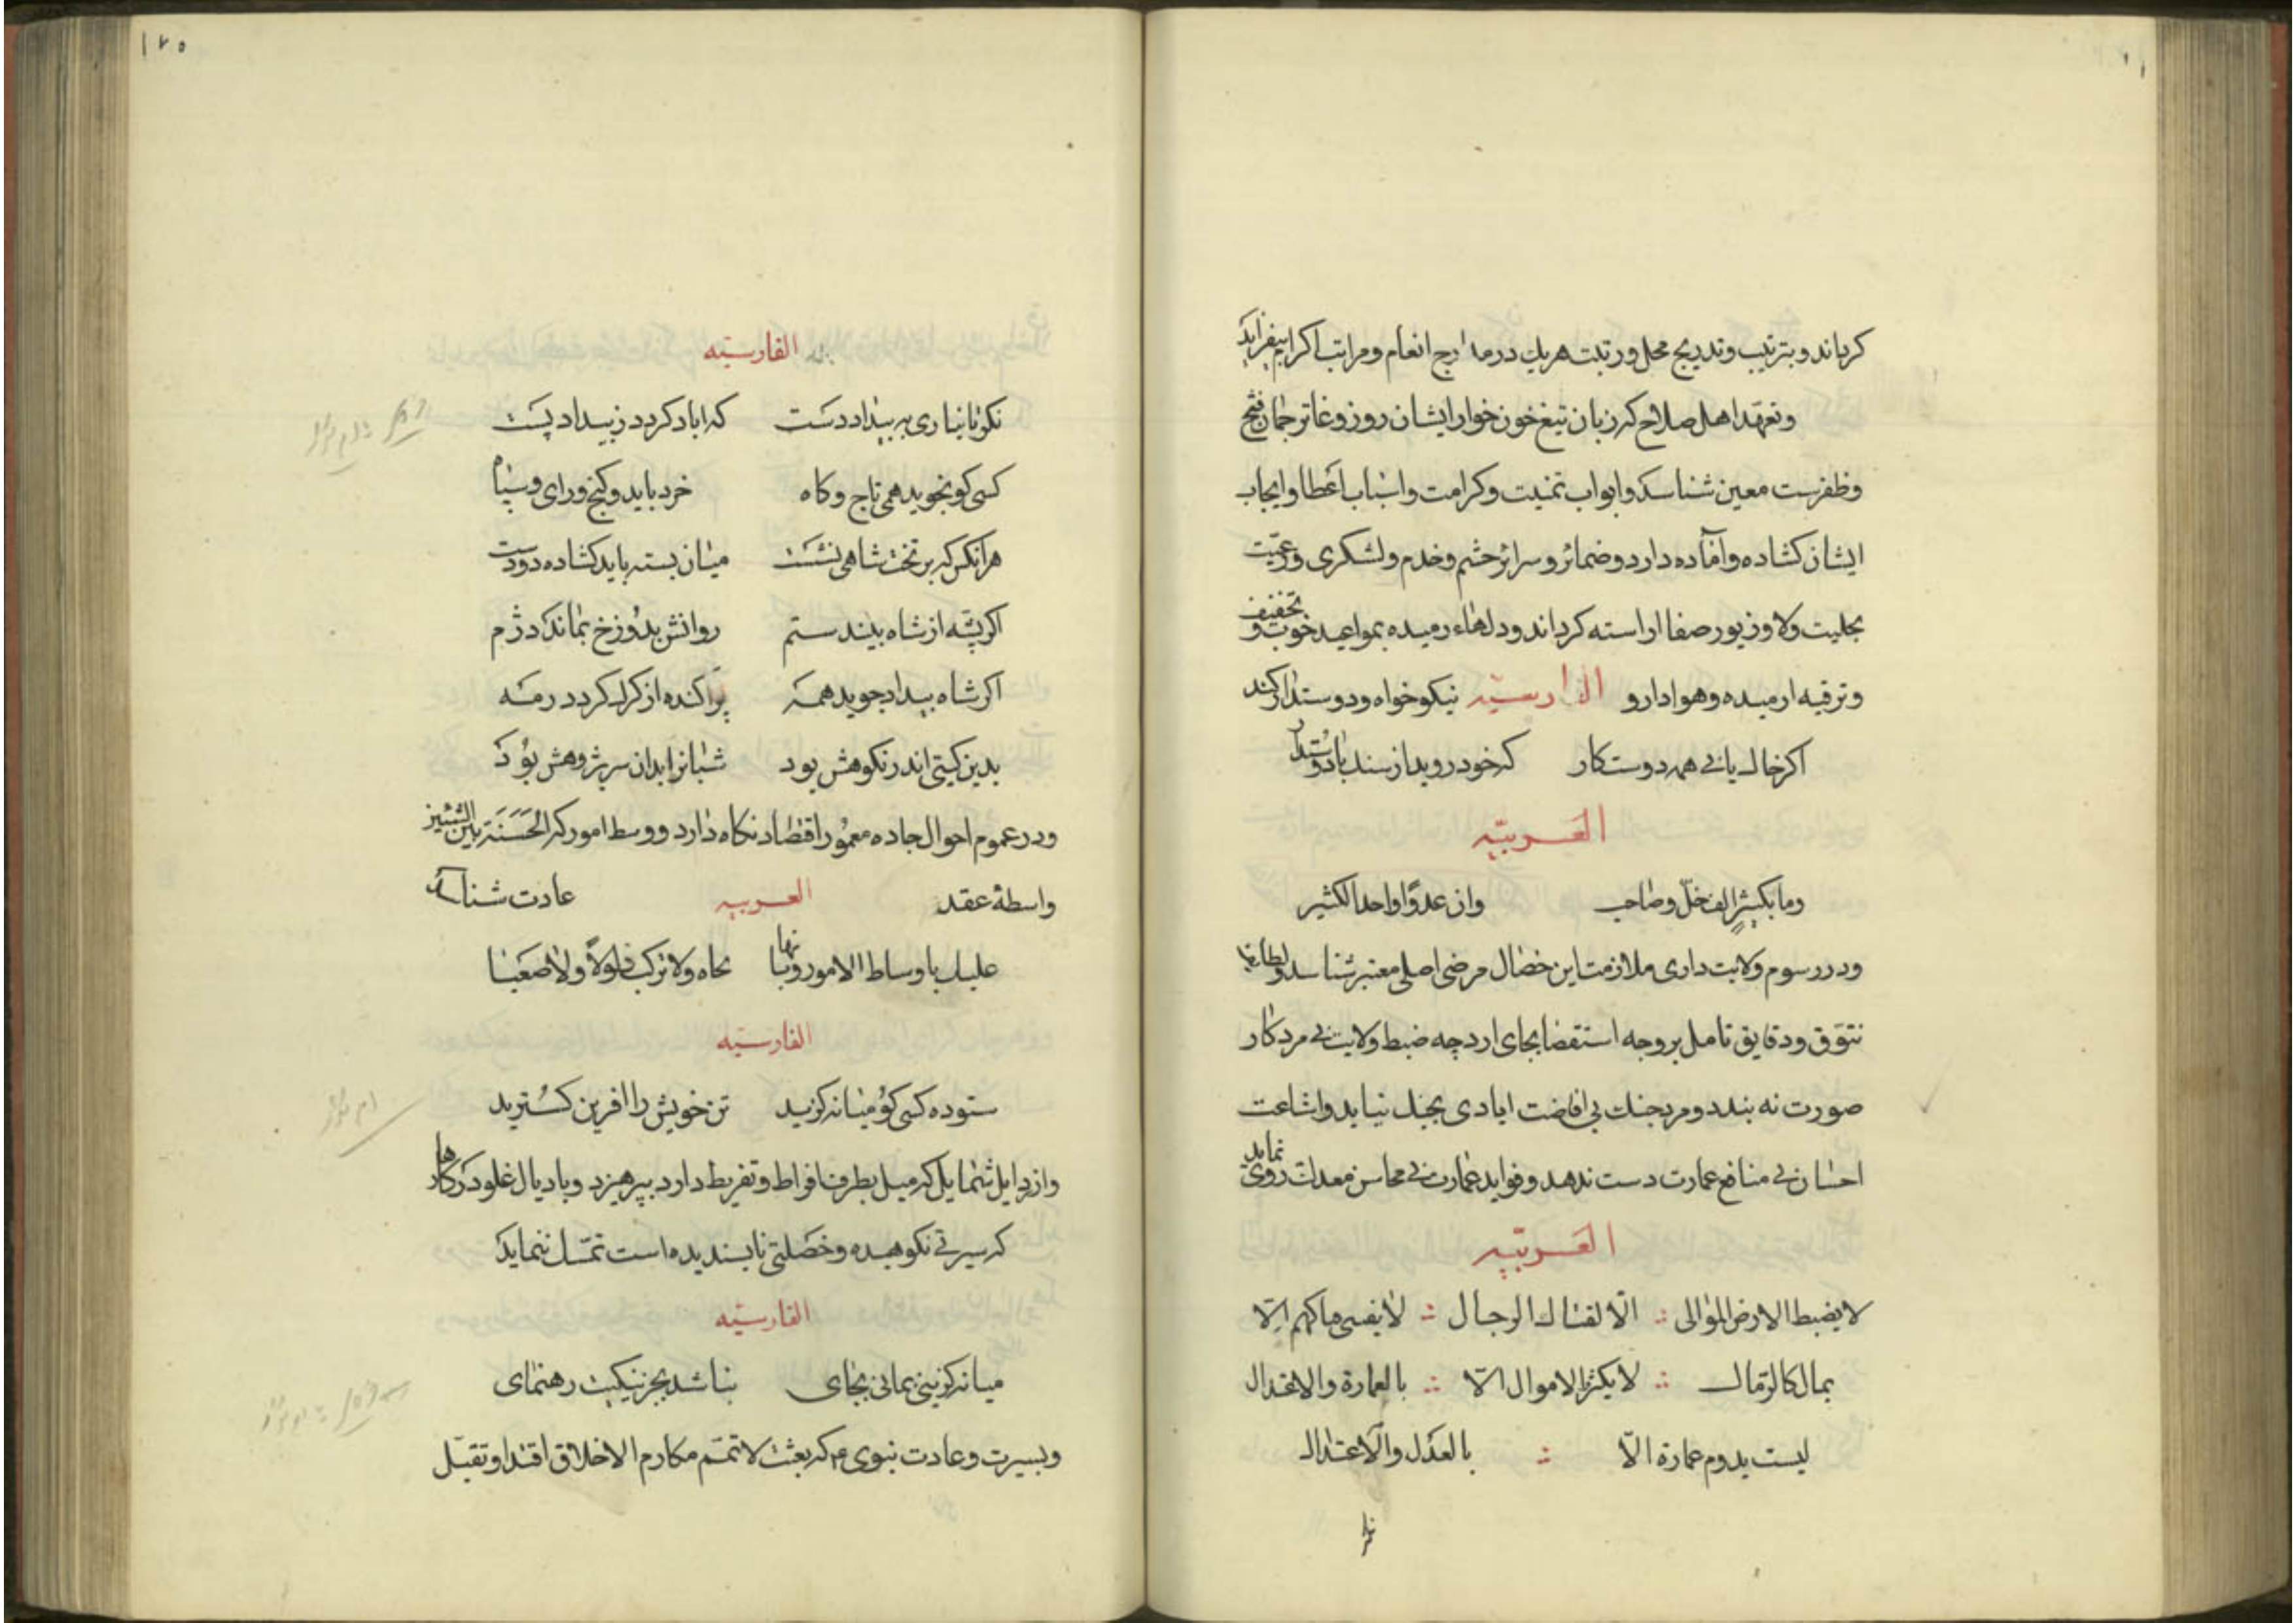 کرداند و بترتیب و تدریج محل و رتبت هریک در مدارج انعام و مراتب اکرام بیفزاید
و تعهد اهل صلاح که زبان تیغ خون خوار ایشان روز وغا ترجمان فتح
و ظفرست معین شناسد و ابواب تمنیت و کرامت و اسباب اعطا و ایجاب
ایشان کشاده و آماده دارد و ضمائر و سرائر حشم و خدم و لشکری و رعیّت
بحلیت ولا و زیور صفا اراسته کرداند و دلهاء رمیده بمواعید خوب و تخفیف
و ترفیه ارمیده و هوادار و الفارسیّه نیکو خواه و دوستدار کند
اکر خال یابی همه دوست کار که خود روید از سند بادوستدار
العَربیّه
وما بکثیرٍ الف خلّ وصاحب وان عدوًّا واحدا لکثیر
و در رسوم ولایت داری ملازمت این خصال مرضی اصلی معتبر شناسد و لطایف
تنوّق و دقایق تامل بر وجه استقصا بجای ارد چه ضبط ولایت بی مرد کار
صورت نه بندد و مرد جنک بی افاضت ایادی بجنک نیاید و اشاعت
احسان بی منافع عمارت دست ندهد و فواید عمارت بی محاسن معدلت روی نماید
العَربیّه
لا یضبط الارض الموالی الّا لفتاک الرجال لا یفنی ماکهم الّا
بمال کالرّمال لا یکثر الاموال الّا بالعمارة والاعتدال
لیست یدوم عمارة الّا بالعدل والاعتدال
۱۲۵
الفارسیّه
نکر تا نیاری به بیداد دست که اباد کردد ز بیداد پست
کسی کو بجوید همی تاج و کاه خرد باید و کنج و رای و سپاه
هرانکس که بر تخت شاهی نشست میان بسته باید کشاده دو دست
اکر پشّه از شاه بیند ستم روانش بدوزخ بماند دژم
اکر شاه بیداد جوید همه پراکنده از کرک کردد رمه
بدین کیتی اندر نکوهش بود شبانرا بدان سر پژوهش بود
و در عموم احوال جاده معمور اقتصاد نکاه دارد و وسط امور که الحَسَنَة بین السّیّئتین
واسطهٔ عقد العربیه عادت شناسد
علیک باوساط الامور فانها نجاه ولا ترکب ذلولاً ولا صعبا
الفارسیّه
ستوده کسی کو میانه کزید تن خویش را افرین کسترید
و از رذایل شمایل که میل بطرف افراط و تفریط دارد بپرهیزد و باذیال غلو در کارها
که سیرتی نکوهیده و خصلتی ناپسندیده است تمسّک ننماید
الفارسیّه
میانه کزینی بمانی بجای نباشد بجز نیکیت رهنمای
و بسیرت و عادت نبوی م که بعثت لاتمّم مکارم الاخلاق اقتدا و تقبّل